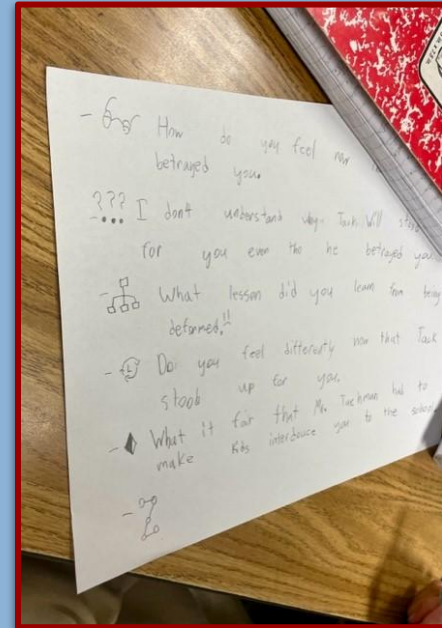 How do you feel now
betrayed you.
??? I don't understand why Jack Will
for you even tho he betrayed you
What lesson did you learn from being
deformed.!!
Do you feel differently now that Jack
stoob up for you.
What it fair that Mr. Tuchman had to
make kids interdouce you to the school